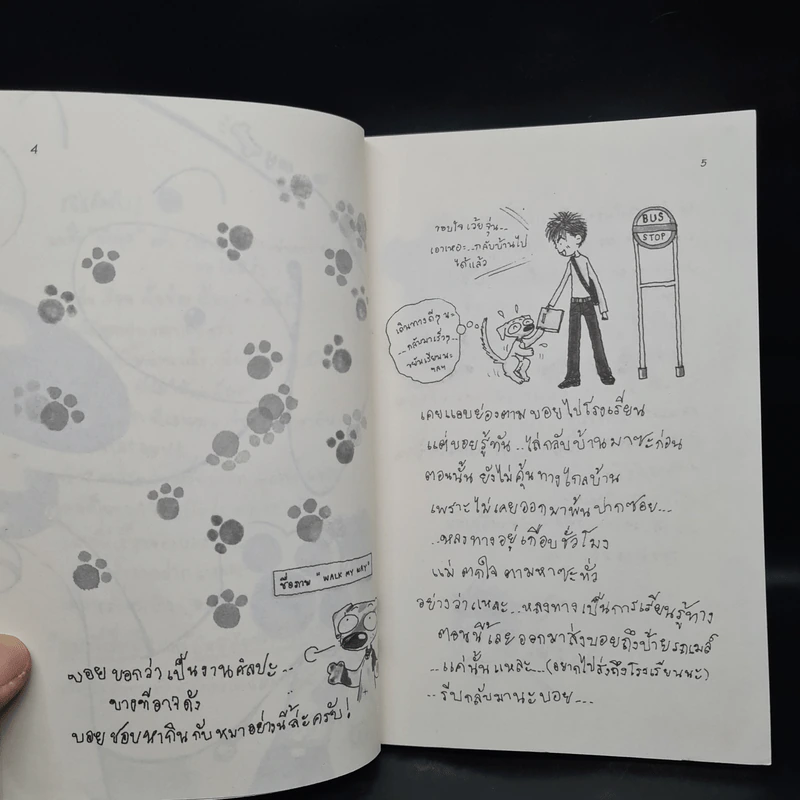 4
ชื่อภาพ "WALK MY WAY"
บอย บอกว่า เป็นงานศิลปะ...
บางทีอาจดัง
บอยชอบหากินกับหมาอย่างนี้ล่ะครับ!
5
ขอบใจ เว้ย จุ่น...
เอาเหอะ..กลับบ้านไป
ได้แล้ว
BUS
STOP
เดินทางดีๆ นะ
...กลับมาเร็วๆ
ขยันเรียนนะ
ฯลฯ
เคยแอบย่องตามบอยไปโรงเรียน
แต่บอยรู้ทัน ..ไล่กลับบ้านมาซะก่อน
ตอนนั้น ยังไม่คุ้นทางไกลบ้าน
เพราะไม่เคยออกมาพ้นปากซอย...
..หลงทางอยู่เกือบชั่วโมง
แม่ ตกใจ ตามหาซะทั่ว
อย่างว่าแหละ...หลงทางเป็นการเรียนรู้ทาง
ตอนนี้เลยออกมาส่งบอยถึงป้ายรถเมล์
...แค่นั้นแหละ...(อยากไปส่งถึงโรงเรียนนะ)
..รีบกลับมานะบอย...